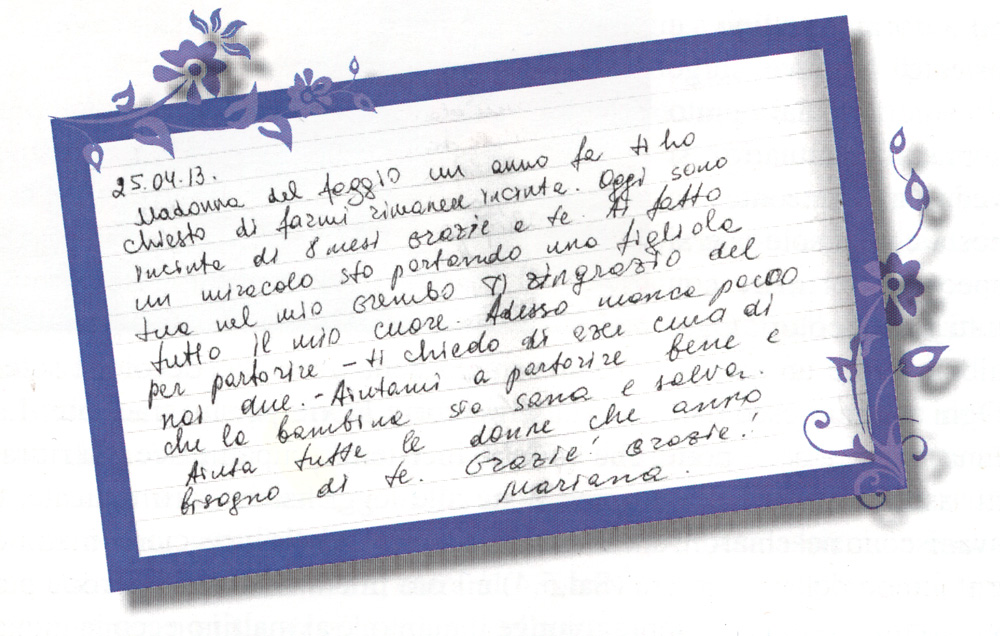 25.04.13.
Madonna del faggio un anno fa ti ho
chiesto di farmi rimanere incinta. Oggi sono
incinta di 8 mesi grazie a te. Ai fatto
un miracolo sto portando una figliola
tua nel mio grembo Ti ringrazio del
tutto il mio cuore. Adesso manca pocco
per partorire - ti chiedo di aver cura di
noi due. - Aiutami a partorire bene e
che la bambina sia sana e salva.
Aiuta tutte le donne che anno
bisogno di te. Grazie! Grazie!
Mariana.